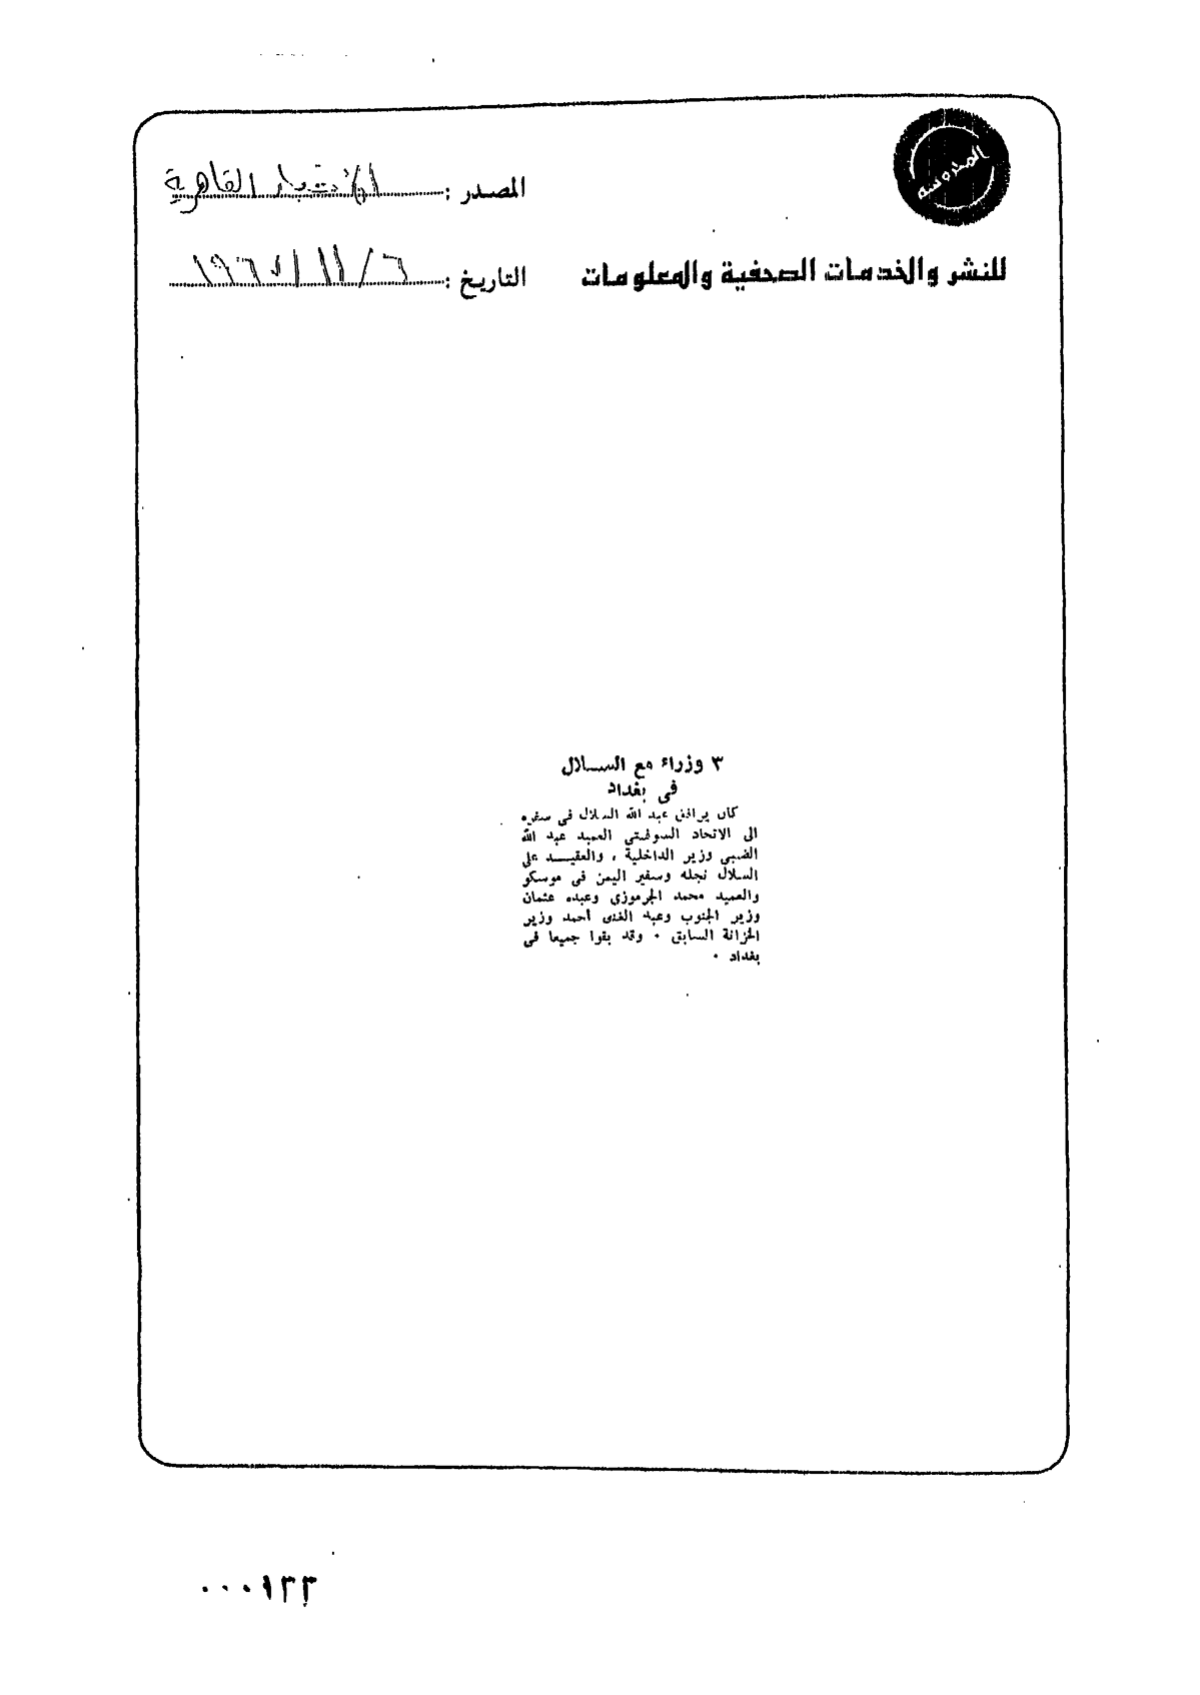 المحروسة
للنشر والخدمات الصحفية والمعلومات
المصدر : الأخبار القاهرية
التاريخ : ٦ / ١١ / ١٩٦٧
٣ وزراء مع الســلال
فى بغداد
كان يرافق عبد الله السلال فى سفره
الى الاتحاد السوفيتى العميد عبد الله
الضبى وزير الداخلية ، والعقيــد على
السلال نجله وسفير اليمن فى موسكو
والعميد محمد الجرموزى وعبده عثمان
وزير الجنوب وعبد الغنى أحمد وزير
الخزانة السابق ٠ وقد بقوا جميعا فى
بغداد ٠
٠٠٠٩٣٣